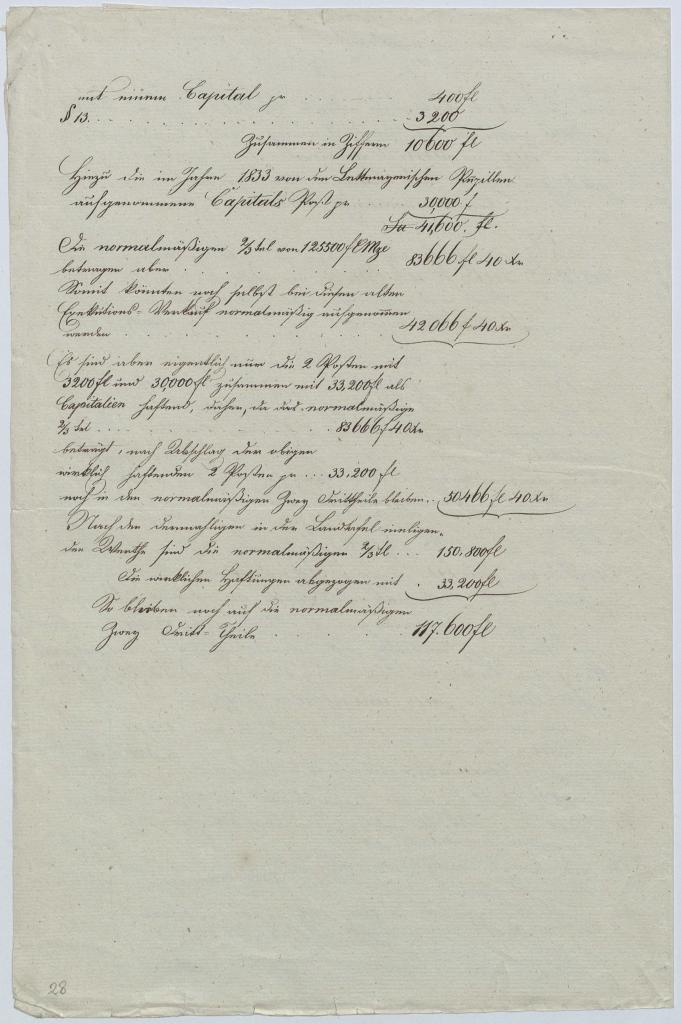 mit einem Capital pr . . . . . 400 fl
§ 13. . . . . . . . . 3200
Zusammen in Ziffern 10600 fl
Hinzu die im Jahre 1833 von den Pupillen
aufgenommene Capitals Post pr . . 30,000 f
Sa 41,600. fl.
Die normalmäßigen 2/3tel von 125500 fl CMze
betragen aber . . . . . . 83666 fl 40 Xr
Somit könnten noch selbst bei diesem alten
Exekutions-Verkauf normalmäßig aufgenommen
werden . . . . . . 42066 f 40 Xr
Es sind aber eigentlich nur die 2 Posten mit
3200 fl und 30,000 fl zusammen mit 33,200 fl als
Capitalien haftend, daher, da das normalmäßige
2/3 tel . . . . . . . 83666 f 40 Xr
beträgt, nach Abschlag der obigen
wirklich haftenden 2 Posten pr . . . 33,200 fl
noch in den normalmäßigen Zwey Drittheile bleiben . . 50466 fl 40 Xr
Nach den dermahligen in der Landtafel einliegen-
den Werthe sind die normalmäßigen 2/3tl . . . 150.800 fl
Die wirklichen Haftungen abgezogen mit . 33,200 fl
So bleiben noch auf die normalmäßigen
Zwey Dritt-Theile . . . . 117.600 fl
28